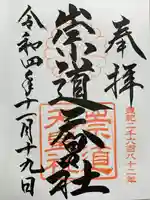 奉拝
皇紀二千六百八十二年
崇道天皇社
令和四年十一月十九日